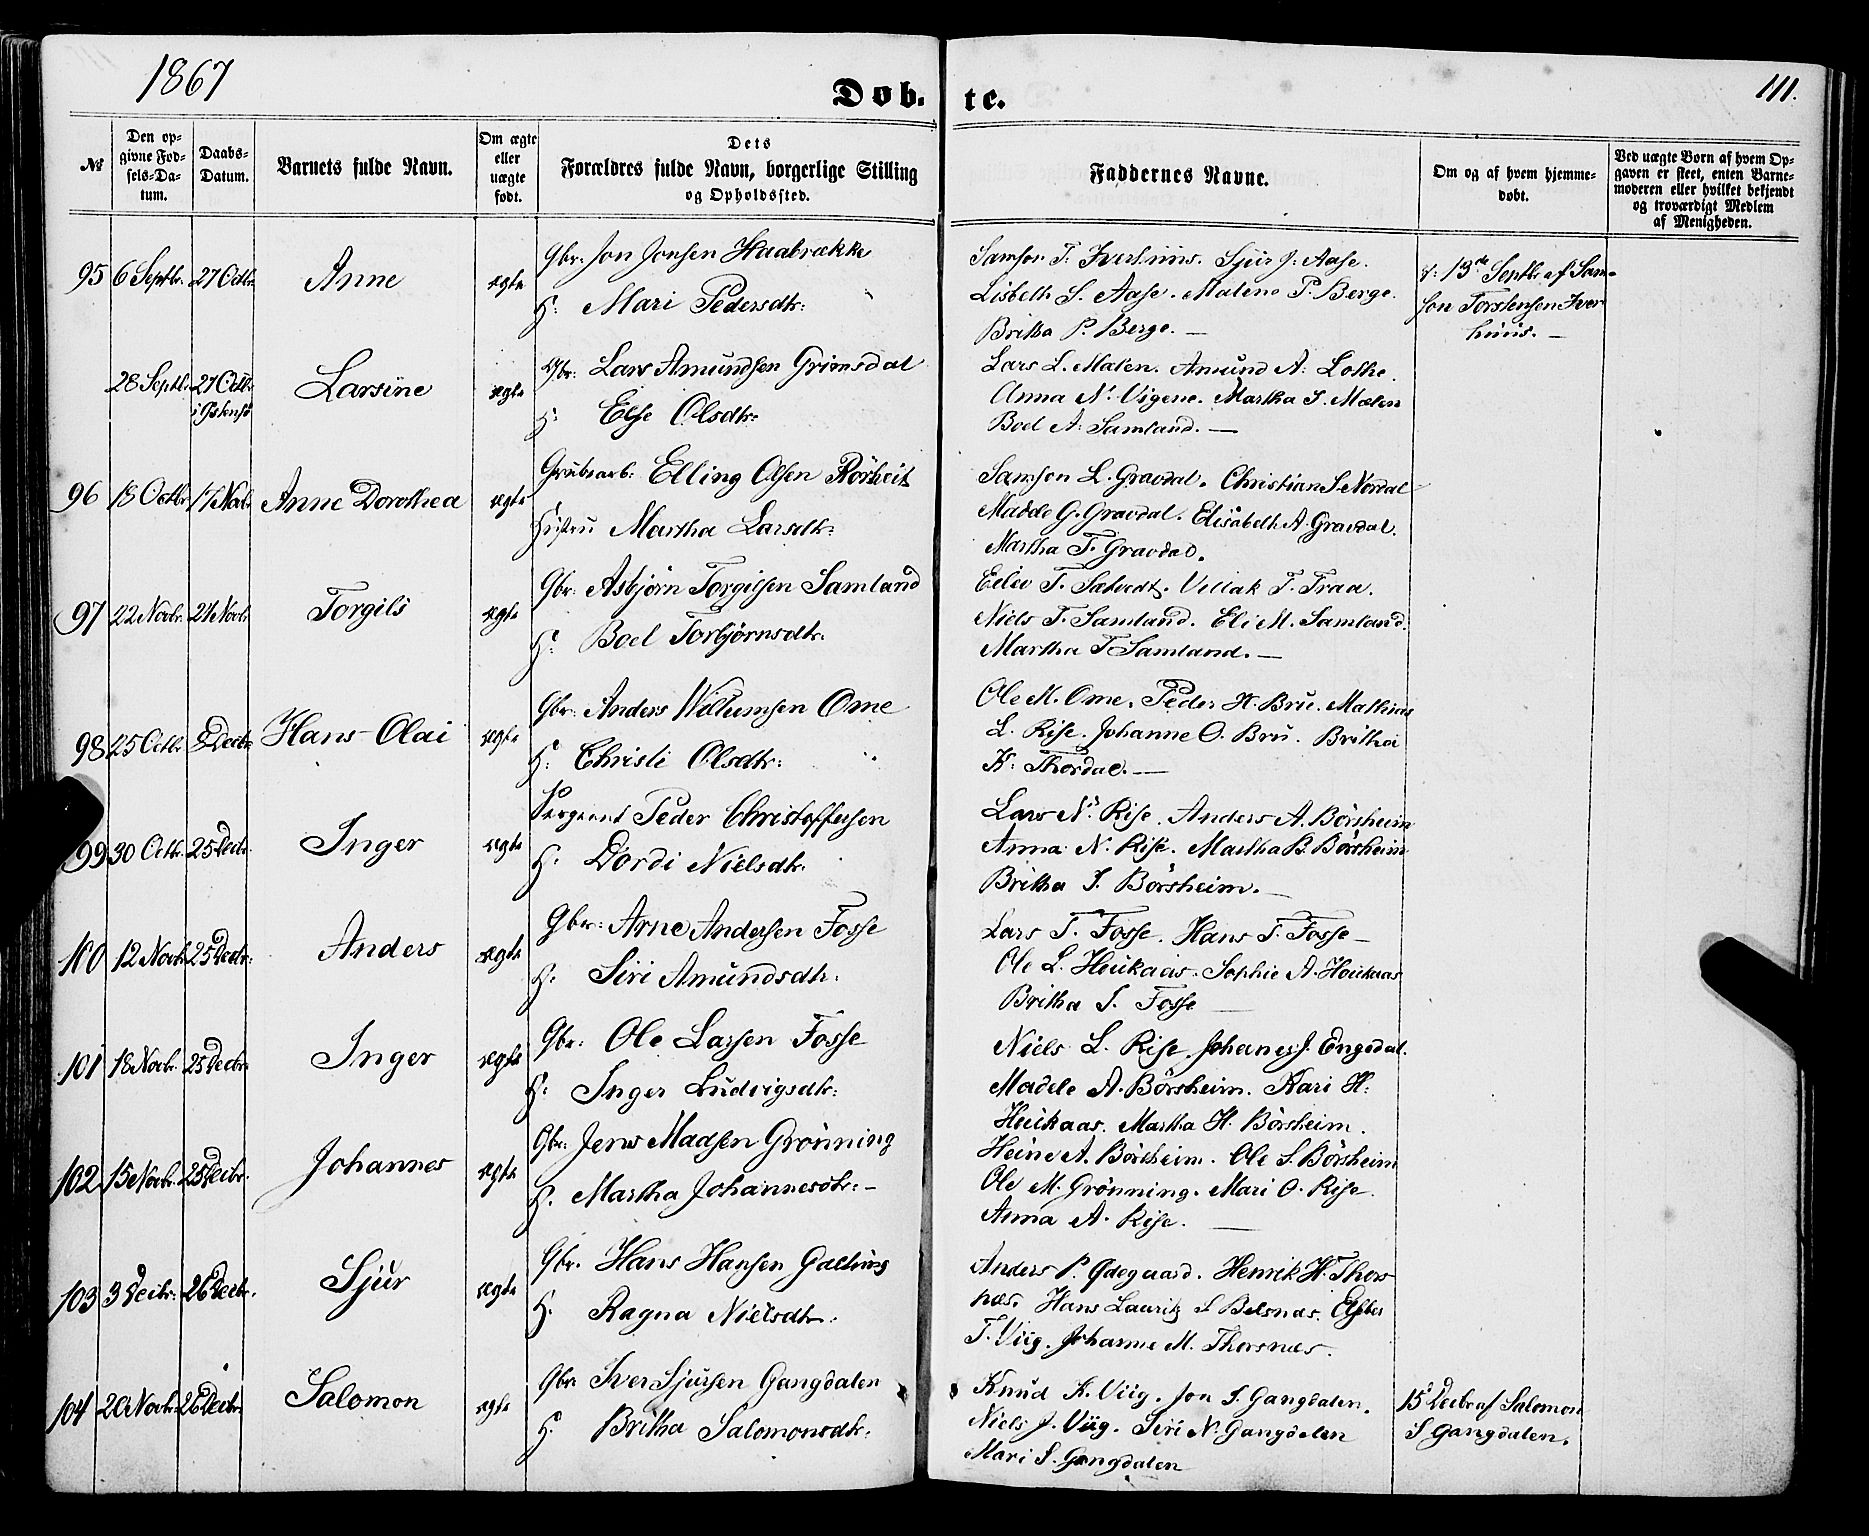 1867
Døb- te.
111.
№
Den op-
givne Fød-
sels-Da-
tum.
Daabs-
Datum.
Barnets fulde Navn.
Om ægte
eller
uægte
født.
Dets
Forældres fulde Navn, borgerlige Stilling
og Opholdssted.
Faddernes Navne.
Om og af hvem hjemme-
døbt.
Ved uægte Børn af hvem Op-
gaven er skeet, enten Barne-
moderen eller hvilket bekjendt
og troværdigt Medlem
af Menigheden.
95 6 Septbr. 27 Octbr. Anne ægte
Gbr: Jon Jonsen Haabrække
H: Mari Pedersdtr:
Samson T. Sjur J: Aase.
Lisbeth S. Aase. Malene P. Berge.
Britha P. Berge. —
13de Septbr af Sam-
son Torstensen Iver
huus. —
28 Septbr. 27 Octbr. Larsine ægte
Gbr: Lars Amundsen Grimsdal
H: Else Olsdtr:
Lars L. Malen. Amund A: Lothe.
Anna N. Vigene. Martha S. Mælen
Boel A: Samland. —
96 18 Octbr 17 Novbr Anne Dorothea ægte
Grubearb: Elling Olsen Rörheit
Hustru Martha Larsdtr:
Samson L. Gravdal. Christian S Nordal
Madele G. Gravdal. Elisabeth A. Gravdal.
Martha T. Gravdal.
97 22 Novbr. 24 Novbr Torgils ægte
Gbr: Asbjörn Torgilsen Samland
H: Boel Torbjörnsdtr:
Eilev T. Sætvedt. Villak T. Traa.
Niels T. Samland. Eli M. Samland.
Martha T Samland. —
98 25 Octbr 8 Decbr Hans-Olai ægte
Gbr: Anders Willumsen Ome
H: Christi Olsdtr:
Ole M. Ome. Peder H. Bru. Mathias
L. Rise. Johanne O. Bru. Britha
K. Thordal. —
99 30 Octbr. 25 Decbr. Inger ægte
Sergeant Peder Christoffersen
H: Dordi Nielsdtr.
Lars N. Rise. Anders A. Börsheim
Anna N. Rise. Martha B. Börsheim
Britha S. Börsheim. —
100 12 Novbr 25 Decbr. Anders ægte
Gbr: Arne Andersen Fosse
H: Siri Amundsdtr.
Lars T. Fosse. Hans T. Fosse —
Ole L. Heukaas. Sophie A. Heukaas
Britha S. Fosse —
101 18 Novbr. 25 Decbr. Inger ægte
Gbr: Ole Larsen Fosse
H: Inger Ludvigsdtr:
Niels L. Rise. Johannes J. Engedal.
Madele A. Börsheim. Kari H:
Heukaas. Martha H. Börsheim.
102 15 Novbr. 25 Decbr. Johannes ægte
Gbr: Jens Madsen Grönning
H. Martha Johannesdtr: —
Heine A. Börsheim. Ole S. Börsheim
Ole M. Grönning. Mari O. Rise.
Anna A. Rise. —
103 3 Decbr. 26 Decbr. Sjur ægte
Gbr. Hans Hansen Galthus
H. Ragna Nielsdtr.
Anders P. Ødegaard. Henrik H. Thors-
næs. Hans Lauritz S Belsnæs.
T. Viig. Johanne M. Thorsnæs.
104 20 Novbr. 26 Decbr. Salomon ægte
Gbr Iver Sjursen Gangdalen
H. Britha Salomonsdtr.
Knud K. Viig. Jon S. Gangdalen.
Niels J. Viig. Siri N. Gangdalen
Mari S. Gangdalen
15 Decbr af Salomon
S Gangdalen.